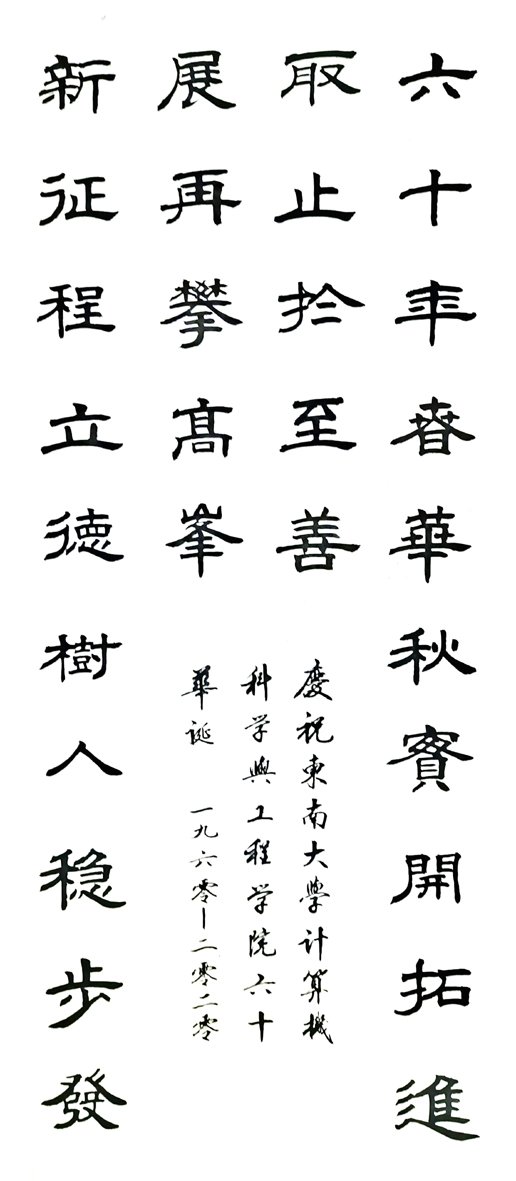 六十年春華秋實開拓進
取止扵至善
新征程立徳樹人稳步發
展再攀髙峯
慶祝東南大學计算機
科学與工程学院六十
華诞 一九六零-二零二零